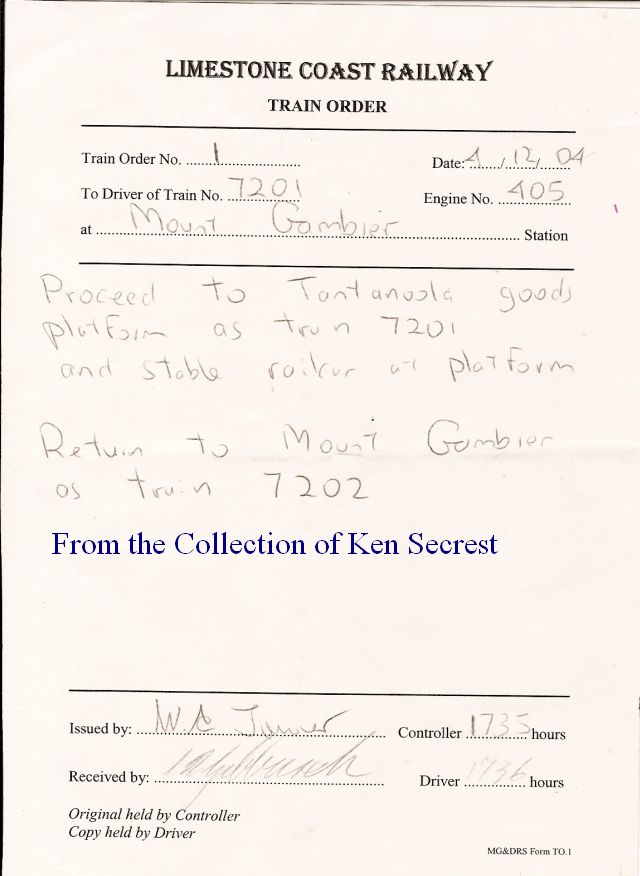 LIMESTONE COAST RAILWAY
TRAIN ORDER
Train Order No. 1
Date: 4/12/04
To Driver of Train No. 7201
Engine No. 405
at Mount Gambier Station
Proceed to Tantanoola goods
platform as train 7201
and stable railcar at platform
Return to Mount Gambier
as train 7202
From the Collection of Ken Secrest
Issued by: W.A Controller 1735 hours
Received by: Driver 1736 hours
Original held by Controller
Copy held by Driver
MG&DRS Form TO.1